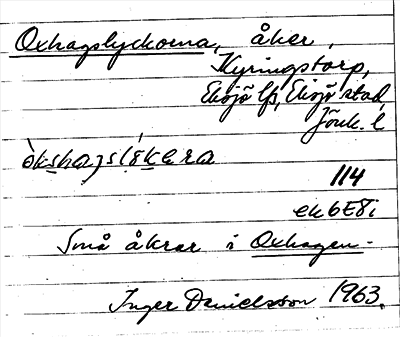 Oxhagslyckorna, åker,
Kyringstorp,
Eksjö lfs, Eksjö stad,
Jönk. l
òkshagslö́kera
114
ek6E8i
Små åkrar i Oxhagen.
Inger Danielsson 1963.